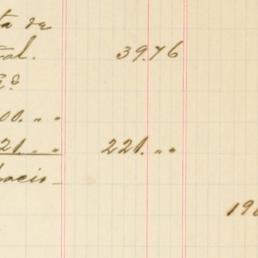 ta de
al. 39.76
E.º
00. " "
21. " " 221. " "
bacio
19